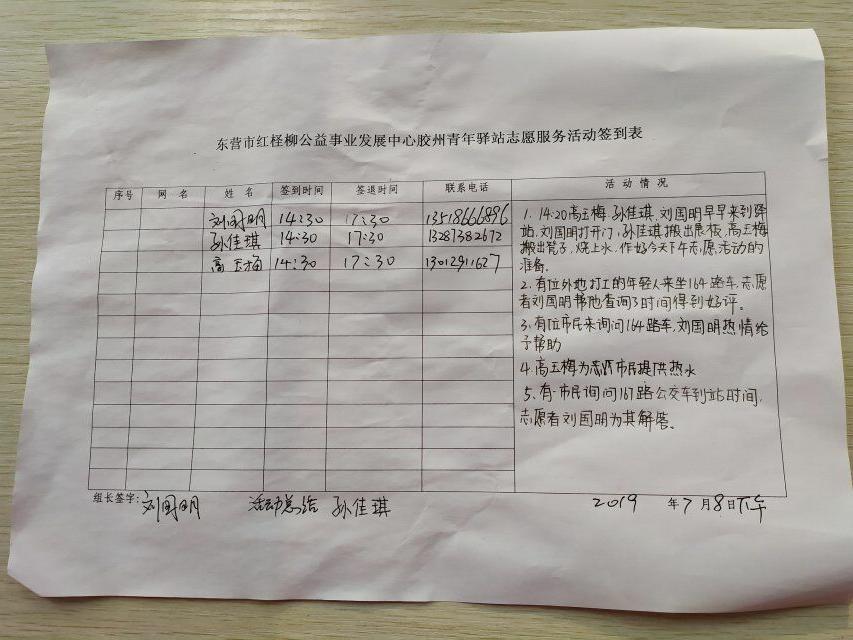 东营市红柽柳公益事业发展中心胶州青年驿站志愿服务活动签到表
序号 网名 姓名 签到时间 签退时间 联系电话 活动情况
刘国明 14:30 17:30 13518666896
孙佳琪 14:30 17:30 13287382672
高玉梅 14:30 17:30 13012911627
1. 14:20高玉梅、孙佳琪、刘国明早早来到驿
站,刘国明打开门,孙佳琪搬出展板,高玉梅
搬出凳子,烧上水,作好今天下午志愿活动的
准备。
2. 有位外地打工的年轻人来坐164路车,志愿
者刘国明帮他查询了时间得到好评。
3. 有位市民来询问164路车,刘国明热情给
予帮助
4. 高玉梅为志愿市民提供热水
5、有一市民询问167路公交车到站时间,
志愿者刘国明为其解答。
组长签字:刘国明 活动总结 孙佳琪 2019年7月8日下午